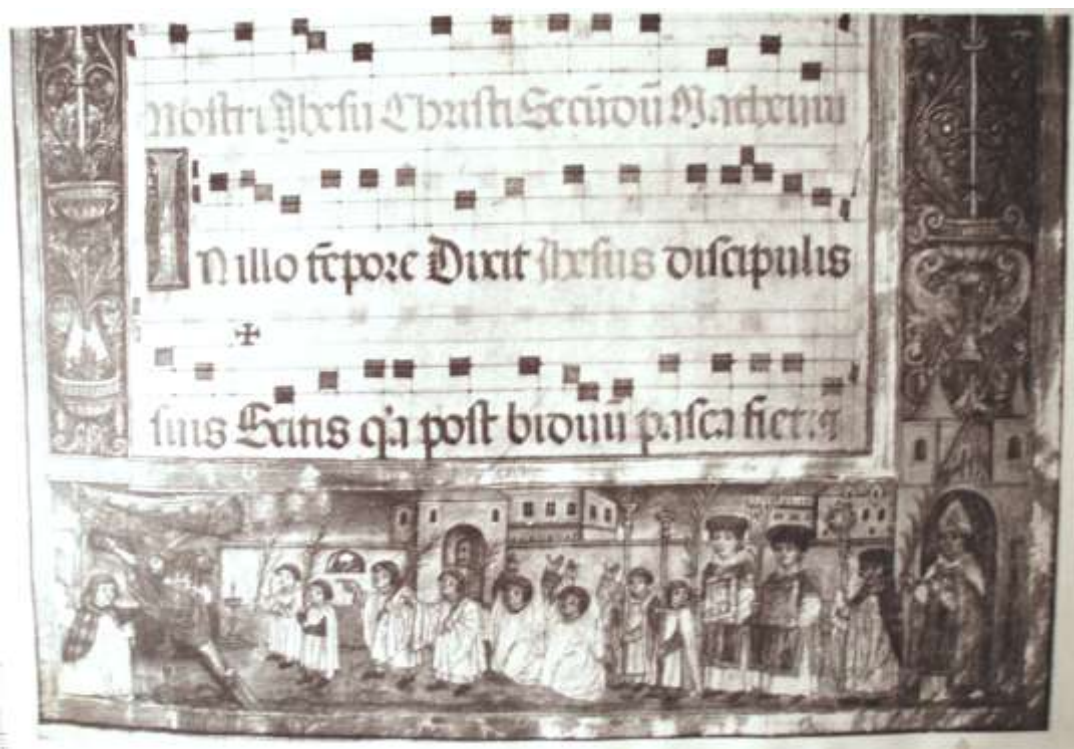 Nostri Jhesu Christi Secūdū Matheum
IN illo tēpore Dixit Jhesus discipulis
suis Scitis q'a post biduū pasca fiet: &